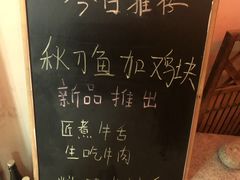 今日推荐
秋刀鱼加鸡块
新品推出
匠煮牛舌
生吃牛肉